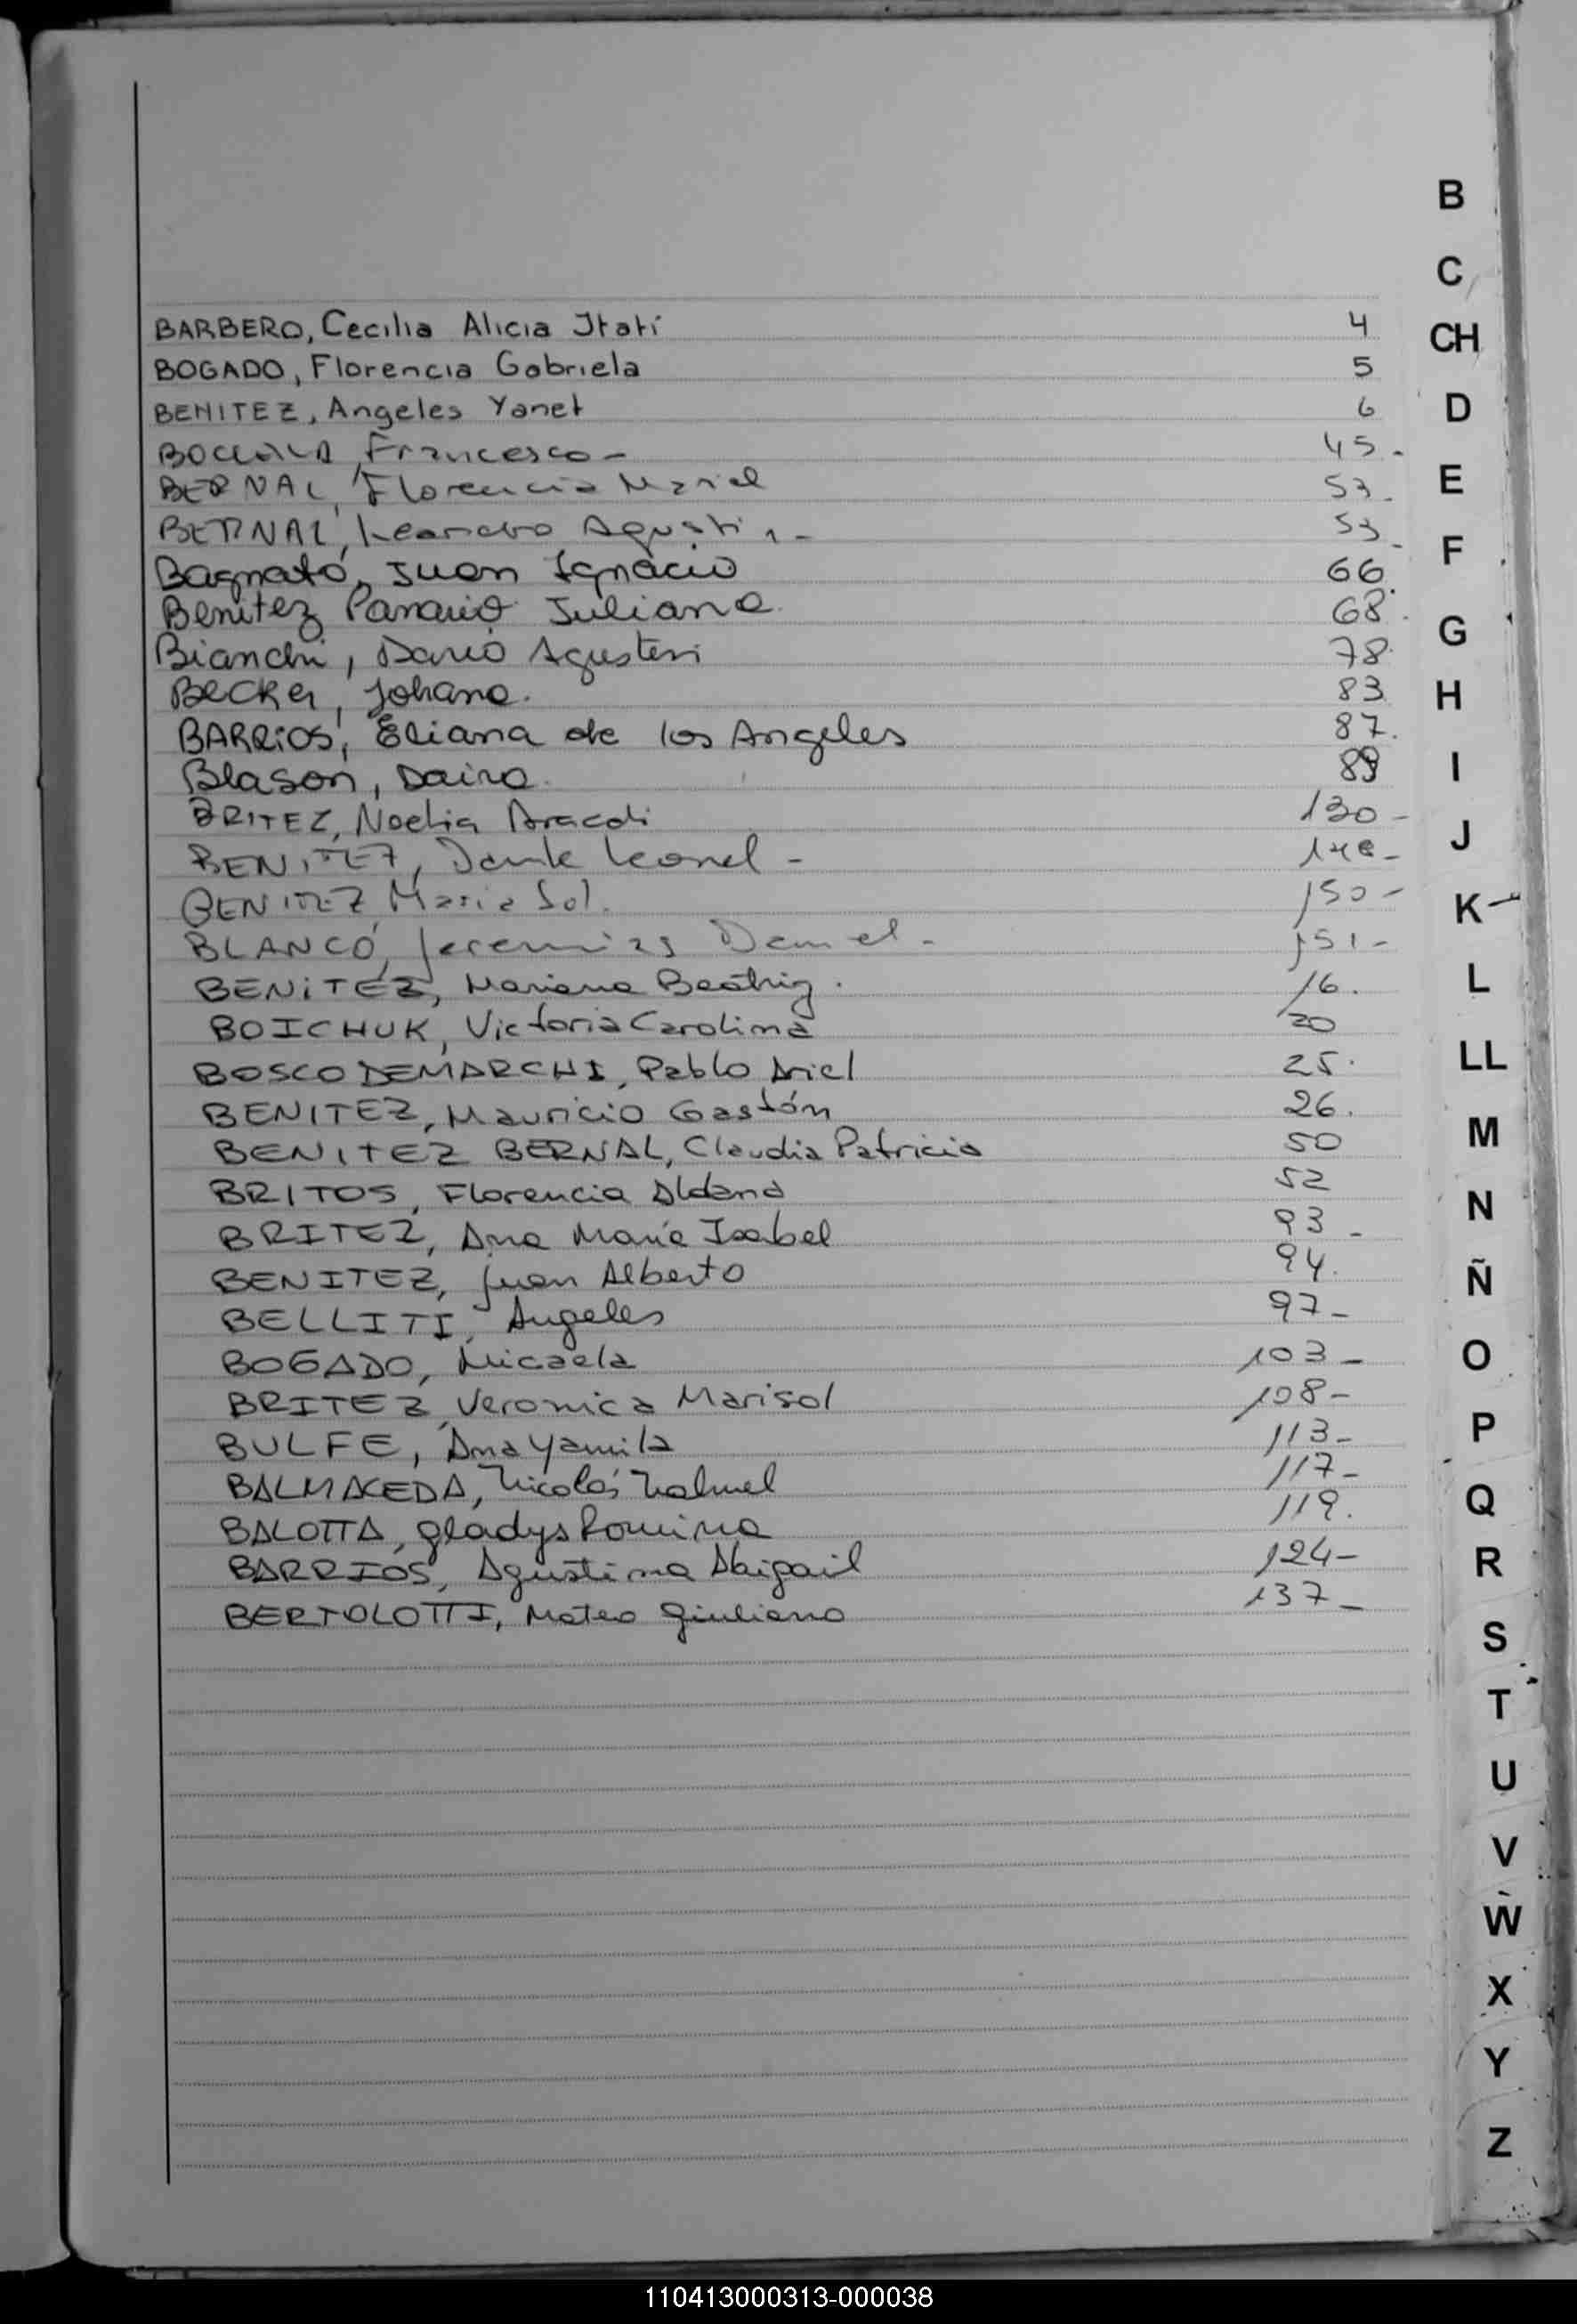 B
C
BARBERO, Cecilia Alicia Itatí 4
CH
BOGADO, Florencia Gabriela 5
BENITEZ, Angeles Yanet 6
D
Francesco - 45.
BERNAL, Florencia Mariel 53.
E
BERNAL, Leandro Agustin - 53
F
Bagnato, Juan Ignacio 66.
Benitez Juliana. 68.
G
Bianchi, Dario Agustin 78.
Becker, Johana. 83.
H
BARRIOS, Eliana de los Angeles 87.
Blason, Daira. 89
I
BRITEZ, Noelia Araceli 130-
J
BENITEZ, Dante Leonel -
BENITEZ Maria Sol. 150-
K
BLANCO, Jeremias Daniel - 151-
BENITEZ, Mariana Beatriz. 16.
L
BOICHUK, Victoria Carolina 20
BOSCO DEMARCHI, Pablo Ariel 25.
LL
BENITEZ, Mauricio Gastón 26.
BENITEZ BERNAL, Claudia Patricia 50
M
BRITOS, Florencia Aldana 52
N
BRITEZ, Ana Maria Isabel 93-
BENITEZ, Juan Alberto 94.
Ñ
BELLITI, Angeles 97-
BOGADO, Micaela 103-
O
BRITEZ, Veronica Marisol 108-
BULFE, Ana Yamila 113-
P
BALMACEDA, Nicolás Nahuel 117-
BALOTTA, Gladys Romina 119.
Q
BARRIOS, Agustina Abigail 124-
R
BERTOLOTTI, Mateo Giuliano 137-
S
T
U
V
W
X
Y
Z
110413000313-000038